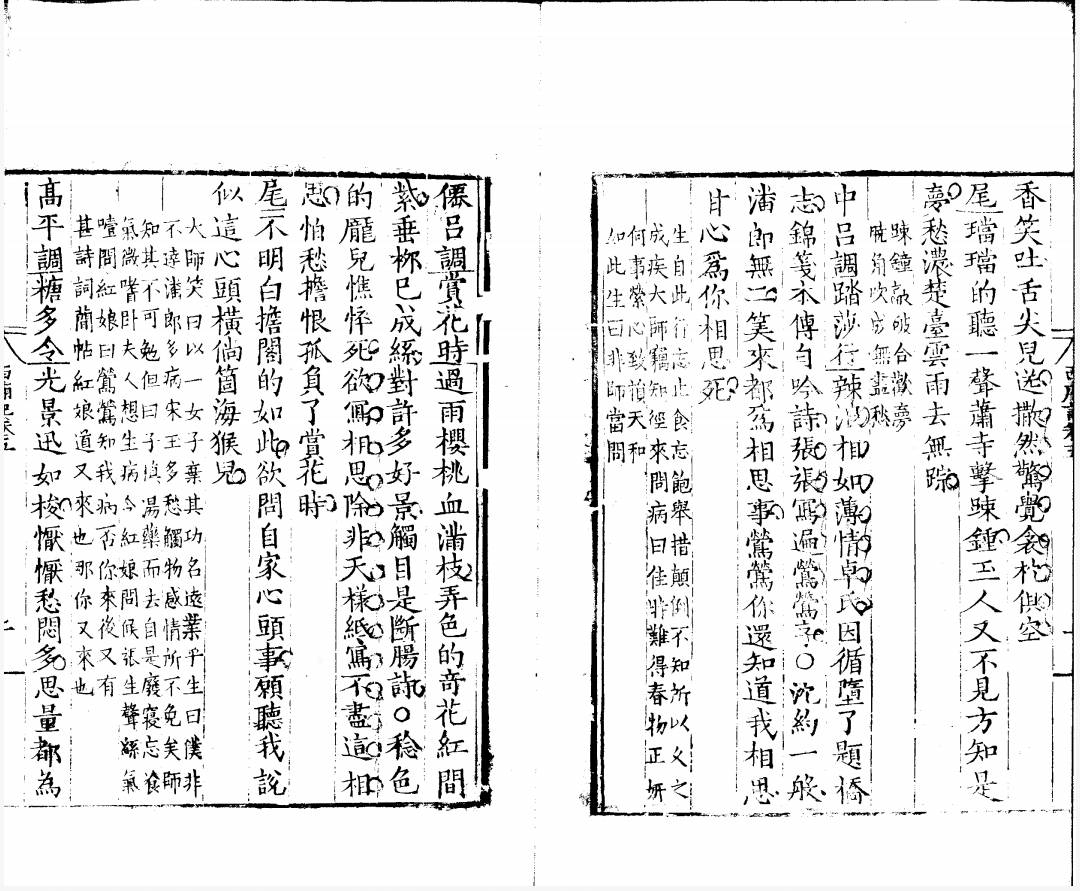 香笑吐舌尖兒送撒然驚覺衾枕俱空
尾璫璫的聽一聲蕭寺擊踈鍾玉人又不見方知是
夢愁濃楚臺雲雨去無踪
踈鐘敲破合歡夢
曉角吹成無盡愁
中呂調踏莎行辣浪相如薄情卓氏因循墮了題橋
志錦箋本傳自吟詩張張寫遍鶯鶯字○沈約一般
潘郎無二笑來都為相思事鶯鶯你還知道我相思
甘心爲你相思死
生自此行忘止食忘飽舉措顛倒不知所以久之
成疾大師竊知經來問病曰佳時難得春物正妍
何事縈心致拍天和
如此生曰非師當問
西廂記卷五
僊呂調賞花時過雨櫻桃血滿枝弄色的奇花紅間
紫垂栁已成絲對許多好景觸目是斷腸詩○稔色
的龐兒憔悴死欲寫相思除非天樣紙寫不盡這相
思怕愁擔恨孤負了賞花時
尾不明白擔閣的如此欲問自家心頭事願聽我說
似這心頭橫倘箇海猴兒
大師笑曰以一女子棄其功名遠業乎生曰僕非
不達潘郎多病宋玉多愁觸物感情所不免矣師
知其不可勉但曰子慎湯藥而去自是廢寢忘飡
氣微嗜卧夫人想生病令紅娘問候張生聲絲氣
噎問紅娘曰鶯鶯知我病否你來後又有
甚詩詞簡帖紅娘道又來也那你又來也
高平調糖多令光景迅如梭懨懨愁悶多思量都為
西廂記卷五